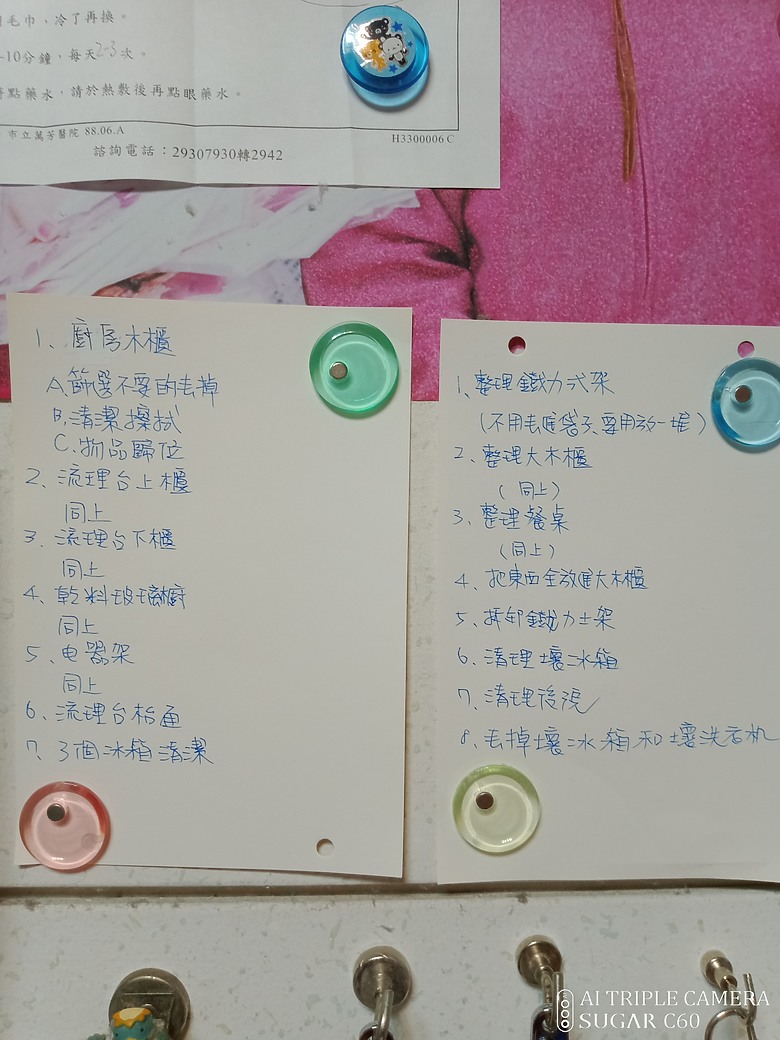 毛巾，冷了再換。
-10分鐘，每天2-3次。
點藥水，請於熱敷後再點眼藥水。
市立萬芳醫院 88.06.A
H3300006C
諮詢電話：29307930轉2942
1、廚房木櫃
A.篩選不要的丟掉
B.清潔擦拭
C.物品歸位
2、流理台上櫃
同上
3、流理台下櫃
同上
4、乾料玻璃廚
同上
5、电器架
同上
6、流理台枱面
7、3個冰箱清潔
1、整理鐵力士架
(不用丟進袋子,要用放一堆)
2、整理大木櫃
(同上)
3、整理餐桌
(同上)
4、把東西全放進大木櫃
5、拆卸鐵力士架
6、清理壞冰箱
7、清理後
8、丟掉壞冰箱和壞洗衣机
AI TRIPLE CAMERA
SUGAR C60